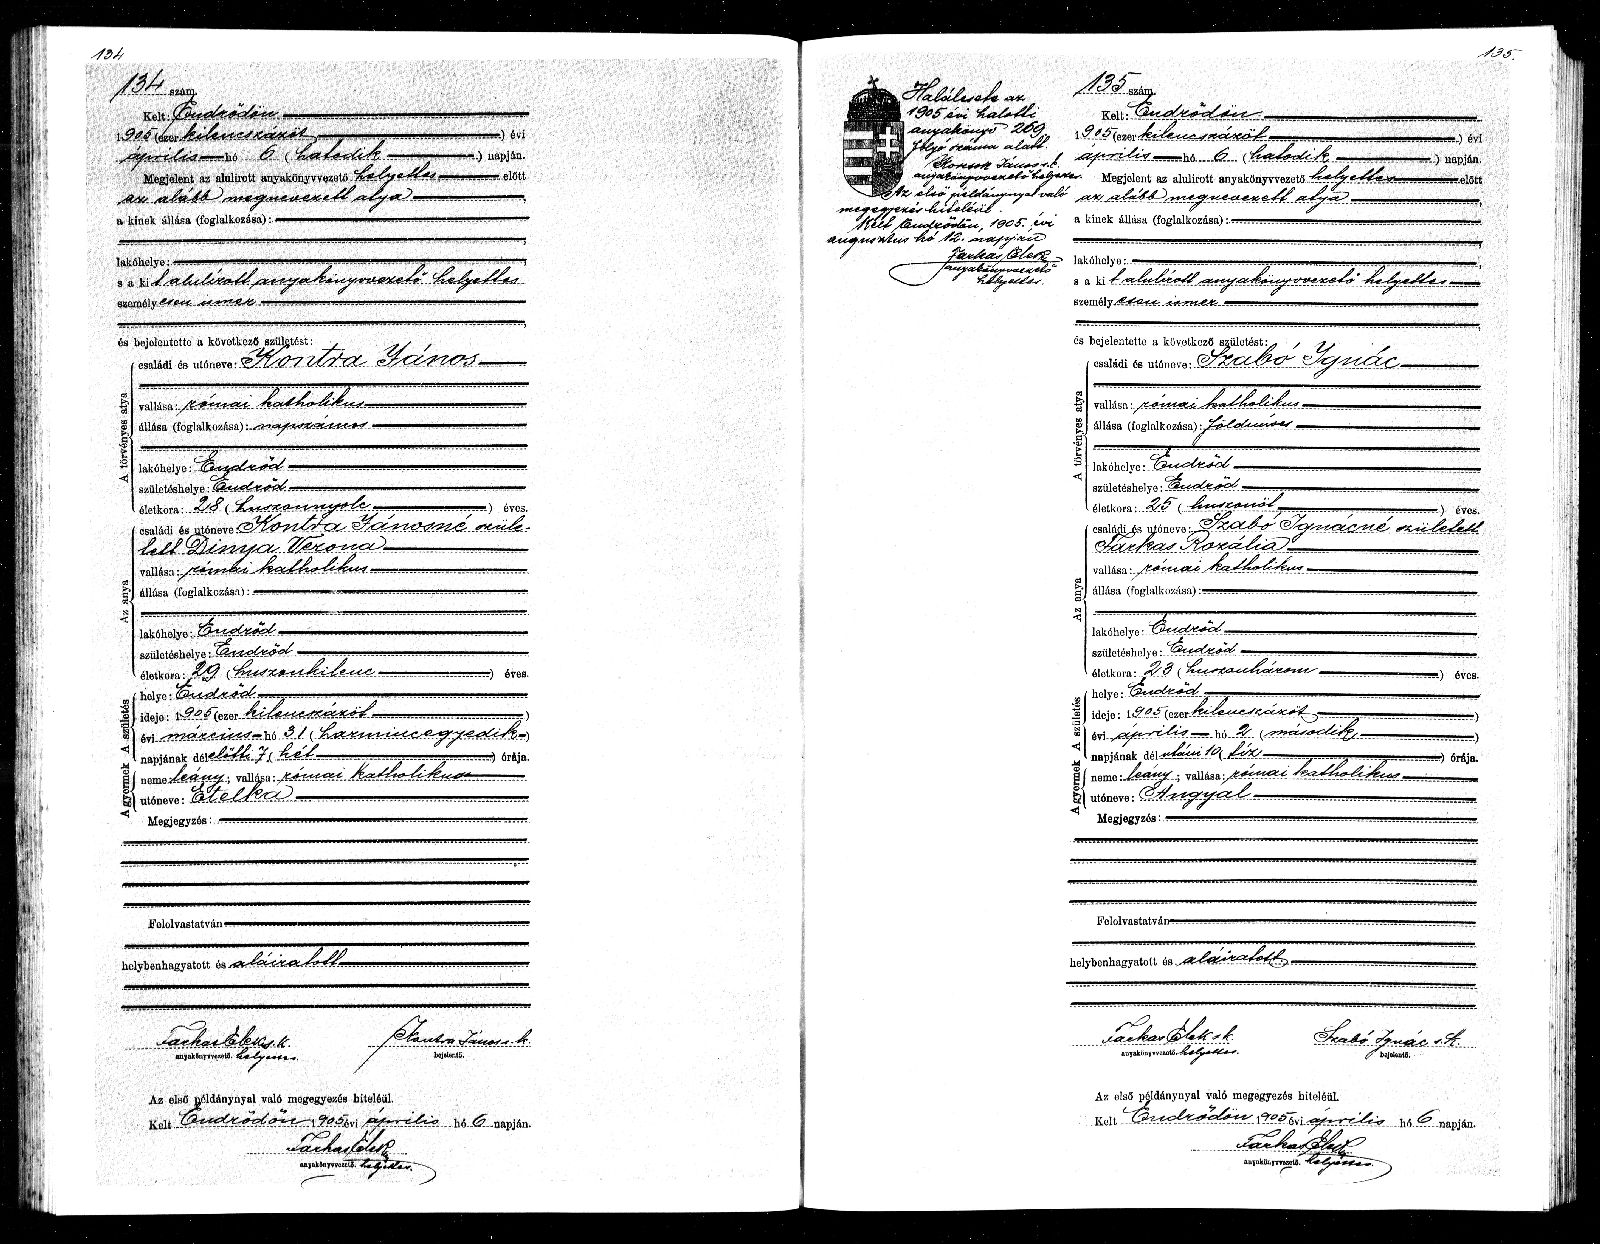 134
134 szám.
Kelt: Endrődön
1905 (ezer kilenczszázöt) évi
április hó 6 (hatodik) napján.
Megjelent az alulirott anyakönyvvezető helyettes előtt
az alább megnevezett atya
a kinek állása (foglalkozása):
lakóhelye:
s a kit alulírott anyakönyvvezető helyettes
személyesen ismer
és bejelentette a következő születést:
A törvényes atya
családi és utóneve: Kontra János
vallása: római katholikus
állása (foglalkozása): napszámos
lakóhelye: Endrőd
születéshelye: Endrőd
életkora: 28 (huszonnyolc) éves.
Az anya
családi és utóneve: Kontra Jánosné szüle-
tett Dinya Verona
vallása: római katholikus
állása (foglalkozása):
lakóhelye: Endrőd
születéshelye: Endrőd
életkora: 29 (huszonkilenc) éves.
A születés
helye: Endrőd
ideje: 1905 (ezer kilenczszázöt)
évi március hó 31 (harmincegyedik)
napjának délelőtti 7 (hét) órája.
A gyermek
neme: leány; vallása: római katholikus
utóneve: Etelka
Megjegyzés:
Felolvastatván
helybenhagyatott és aláiratott
Farkas Elek s.k. Kontra János s.k.
anyakönyvvezető. helyettes. bejelentő.
Az első példánynyal való megegyezés hiteléül.
Kelt Endrődön 1905 évi április hó 6 napján.
Farkas Elek
anyakönyvvezető. helyettes.
135.
Haláleset az
1905 évi halotti
anyakönyv 269
folyó száma alatt.
János s.k.
anyakönyvvezető helyettes.
Az első példánynyal való
megegyezés hiteléül.
Kelt Endrődön, 1905. évi
augusztus hó 12. napján
Farkas Elek
anyakönyvvezető
helyettes.
135 szám.
Kelt: Endrődön
1905 (ezer kilenczszázöt) évi
április hó 6 (hatodik) napján.
Megjelent az alulirott anyakönyvvezető helyettes előtt
az alább megnevezett atya
a kinek állása (foglalkozása):
lakóhelye:
s a kit alulírott anyakönyvvezető helyettes
személyesen ismer
és bejelentette a következő születést:
A törvényes atya
családi és utóneve: Szabó Ignác
vallása: római katholikus
állása (foglalkozása): földmíves
lakóhelye: Endrőd
születéshelye: Endrőd
életkora: 25 (huszonöt) éves.
Az anya
családi és utóneve: Szabó Ignácné született
Farkas Rozália
vallása: római katholikus
állása (foglalkozása):
lakóhelye: Endrőd
születéshelye: Endrőd
életkora: 23 (huszonhárom) éves.
A születés
helye: Endrőd
ideje: 1905 (ezer kilenczszázöt)
évi április hó 2 (második)
napjának délutáni 10 (tíz) órája.
A gyermek
neme: leány; vallása: római katholikus
utóneve: Angyal
Megjegyzés:
Felolvastatván
helybenhagyatott és aláiratott
Farkas Elek sk. Szabó Ignác s.k.
anyakönyvvezető. helyettes. bejelentő.
Az első példánynyal való megegyezés hiteléül.
Kelt Endrődön 1905 évi április hó 6 napján.
Farkas Elek
anyakönyvvezető. helyettes.